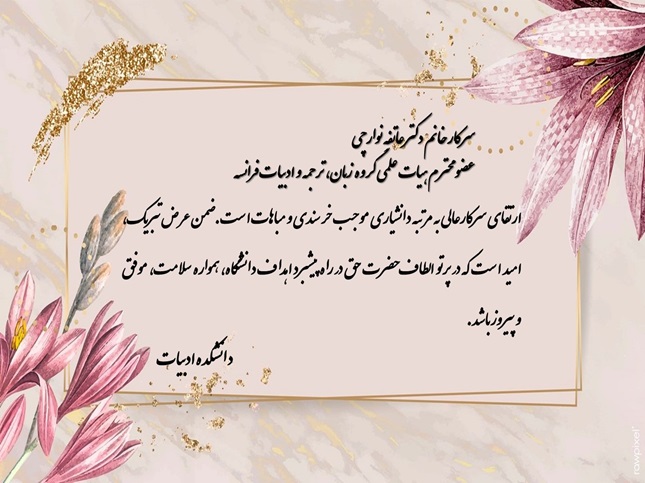 سرکار خانم دکتر عاتفه نوارچی
عضو محترم هیات علمی گروه زبان، ترجمه و ادبیات فرانسه
ارتقای سرکار عالی به مرتبه دانشیاری موجب خرسندی و مباهات است. ضمن عرض تبریک،
امید است که در پرتو الطاف حضرت حق در راه پیشبرد اهداف دانشگاه، همواره سلامت، موفق
و پیروز باشد.
دانشکده ادبیات
rawpixel